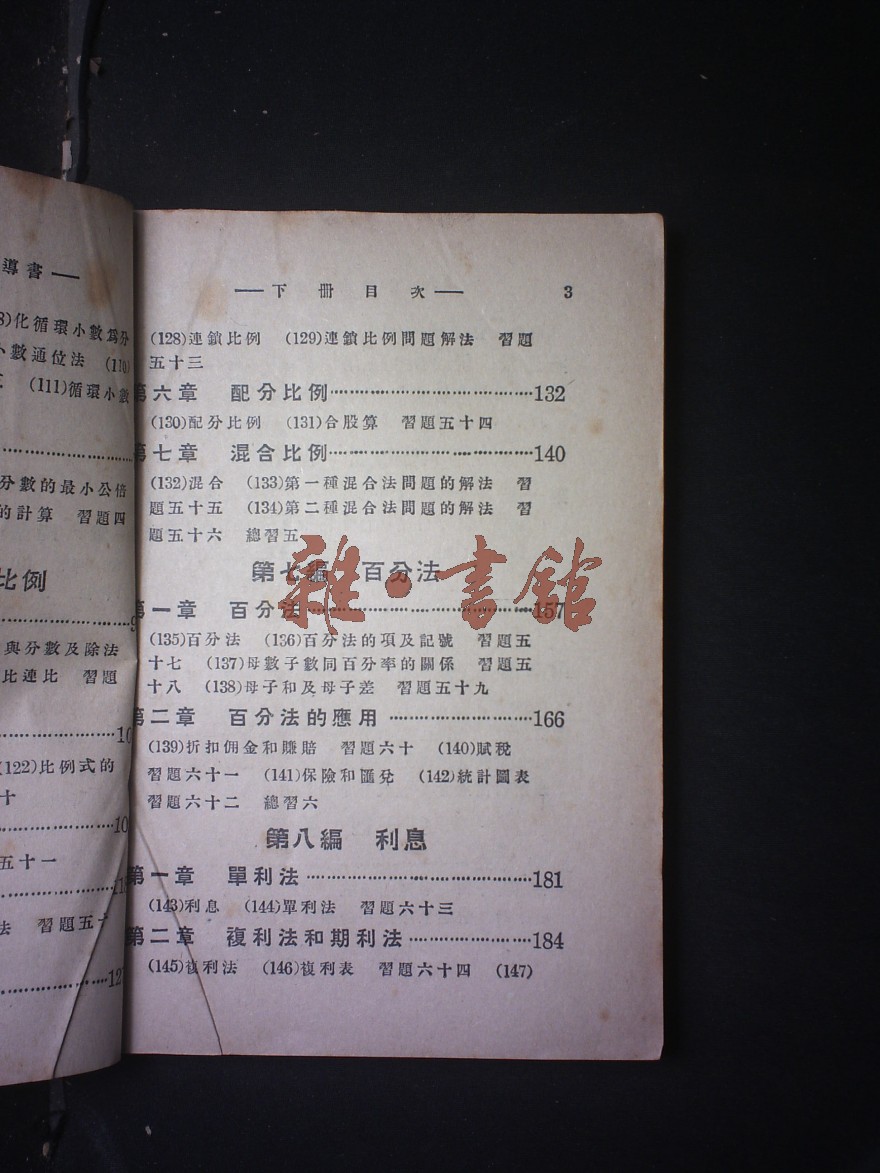 導書——
8)化循環小數爲分
小數通位法 (110)
(111)循環小數
分數的最小公倍
的計算 習題四
比例
與分數及除法
比連比 習題
(122)比例式的
十
五十一
法 習題五十
——下冊目次—— 3
(128)連鎖比例 (129)連鎖比例問題解法 習題
五十三
第六章 配分比例……………………………132
(130)配分比例 (131)合股算 習題五十四
第七章 混合比例……………………………140
(132)混合 (133)第一種混合法問題的解法 習
題五十五 (134)第二種混合法問題的解法 習
題五十六 總習五
第七編 百分法
第一章 百分法……………………………157
(135)百分法 (136)百分法的項及記號 習題五
十七 (137)母數子數同百分率的關係 習題五
十八 (138)母子和及母子差 習題五十九
第二章 百分法的應用……………………166
(139)折扣佣金和賺賠 習題六十 (140)賦稅
習題六十一 (141)保險和匯兌 (142)統計圖表
習題六十二 總習六
第八編 利息
第一章 單利法……………………………181
(143)利息 (144)單利法 習題六十三
第二章 複利法和期利法…………………184
(145)複利法 (146)複利表 習題六十四 (147)
雜·書館